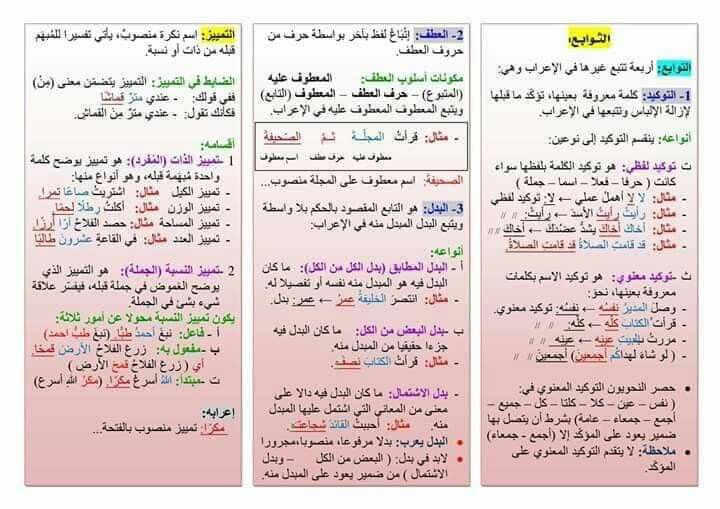 التـوابع:
التوابع: أربعة تتبع غيرها في الإعراب وهي:
1- التوكيد: كلمة معروفة بعينها، تؤكّد ما قبلها
لإزالة الإلباس وتتبعها في الإعراب.
أنواعه: ينقسم التوكيد إلى نوعين:
ت توكيد لفظي: هو توكيد الكلمة بلفظها سواء
كانت ( حرفا – فعلا – اسما – جملة )
- مثال: لا لا أهملُ عملي ← لا: توكيد لفظي
- مثال: رأيتُ رأيتُ الأسدَ ← رأيتُ: // //
- مثال: أخاكَ أخاكَ يشدُّ عضدكَ ← أخاكَ: // //
- مثال: قد قامتِ الصلاةُ قد قامتِ الصلاةُ
ث- توكيد معنوي: هو توكيد الاسم بكلمات
معروفة بعينها، نحوَ:
- وصلَ المديرُ نفسُه ← نفسُه: توكيد معنوي.
- قرأتُ الكتابَ كلَّه ← كلَّه: // //
- مررتُ بالبيتِ عينِه ← عينِه // //
- ( لو شاءَ لهداكُم أجمعينَ) أجمعينَ // //
● حصر النحويون التوكيد المعنوي في:
( نفس – عين – كلا – كلتا – كل – جميع –
أجمع – جمعاء – عامة) بشرط أن يتصل بها
ضمير يعود على المؤكد إلا (أجمع - جمعاء)
● ملاحظة: لا يتقدم التوكيد المعنوي على
المؤكّد.
2- العطف: إتْباعُ لفظ بآخر بواسطة حرف من
حروف العطف.
مكونات أسلوب العطف: المعطوف عليه
(المتبوع) – حرف العطف – المعطوف (التابع)
ويتبع المعطوف المعطوف عليه في الإعراب.
- مثال: قرأتُ المجلّـةَ ثـمَّ الصّـحيفةَ
معطوف عليه حرف عطف اسم معطوف
الصحيفةَ: اسم معطوف على المجلة منصوب...
3- البدل: هو التابع المقصود بالحكم بلا واسطة
ويتبع البدل المبدل منه في الإعراب.
أنواعه:
أ - البدل المطابق (بدل الكل من الكل): ما كان
البدل فيه هو المبدل منه نفسه أو تفصيلا له.
- مثال: انتصرَ الخليفةُ عمرُ ← عمرُ: بدل.
ب - بدل البعض من الكل: ما كان البدل فيه
جزءا حقيقيا من المبدل منه.
- مثال: قرأتُ الكتابَ نصفَه.
- بدل الاشتمال: ما كان البدل فيه دالا على
معنى من المعاني التي اشتمل عليها المبدل
منه. مثال: أحببتُ القائدَ شجاعتَه.
● البدل يعرب: بدلا مرفوعا، منصوبا،مجرورا
● لابد في بدل: ( البعض من الكل – وبدل
الاشتمال ) من ضمير يعود على المبدل منه.
التمييز: اسم نكرة منصوبٌ، يأتي تفسيرا للمُبهَم
قبله من ذات أو نسبة.
الضابط في التمييز: التمييز يتضمّن معنى (مِنْ)
ففي قولك: - عندي مترٌ قماشًا
فكأنك تقول: - عندي مترٌ مِنْ القماشِ.
أقسامه:
1 -تمييز الذات (المُفرد): هو تمييز يوضح كلمة
واحدة مُبهَمة قبله، وهو أنواع منها:
- تمييز الكيل مثال: اشتريتُ صاعًا تمرا.
- تمييز الوزن مثال: أكلتُ رطلًا لحمًا
- تمييز المساحة مثال: حصد الفلاحُ آرًا أرزًا
- تمييز العدد مثال: في القاعةِ عشرونَ طالبًا
2 -تمييز النسبة (الجملة): هو التمييز الذي
يوضح الغموض في جملة قبله، فيفسّر علاقة
شيء بشئ في الجملة.
يكون تمييز النسبة محولا عن أمور ثلاثة:
أ - فاعل: نبغَ أحمدُ طبًّا (نبغَ طبُّ احمد)
ب- مفعول به: زرعَ الفلاحُ الأرضَ قمحًا.
أي ( زرع الفلاحُ قمحَ الأرضِ )
ت -مبتدأ: اللهُ أسرعُ مكرًا. (مكرُ اللهِ أسرع)
إعرابه:
مكرًا: تمييز منصوب بالفتحة...